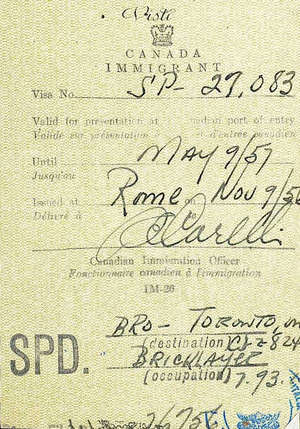 CANADA
IMMIGRANT
Visa No. SP- 27,083
Valid for presentation at Canadian port of entry
Valable sur présentation à d'entrée canadien
Until MAY 9/57
Jusqu'au
Issued at Rome on Nov 9/56
Délivré à
Canadian Immigration Officer
Fonctionnaire canadien à l'immigration
IM-26
BRO- TORONTO,
(destination) C-2824
SPD.
BRICKLAYER
(occupation) 7.93.